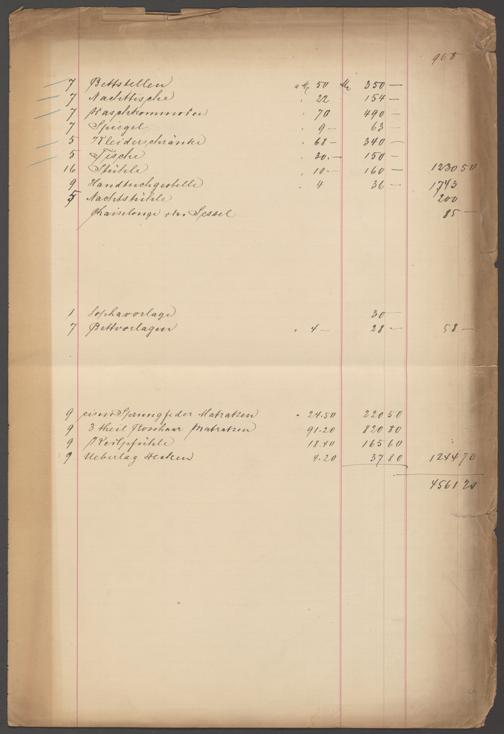 7 Bettstellen a M 50 M 350 —
7 Nachttische " 22 154 —
7 Waschkommoden " 70 490 —
7 Spiegel " 9 — 63 —
5 Kleiderschränke " 68 — 340 —
5 Tische " 30. — 150 —
16 Stühle " 10 — 160 — 1230 50
9 Handtuchgestelle " 4 36 — 1743
5 Nachtstühle 200
Chaiselonge oder Sessel 85 —
1 Sophavorlage 30 —
7 Bettvorlagen " 4 — 28 — 58 —
9 Sprungfeder Matratzen " 24.50 220 50
9 3 theil Rosshaar Matratzen 91.20 820 80
9 18.40 165 60
9 Ueberlag Decken 4.20 37.80 1244 70
4561 20